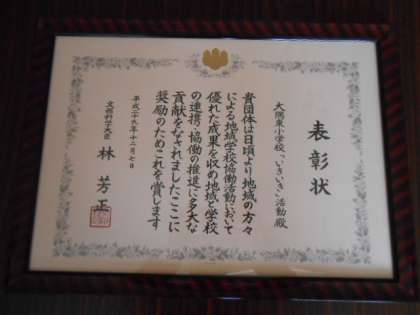 表彰状
大開東小学校「いきいき」活動殿
貴団体は日頃より地域の方々
による地域学校協働活動において
優れた成果を収め地域と学校
の連携・協働の推進に多大な
貢献をなされましたここに
奨励のためこれを賞します
平成二十九年十二月七日
文部科学大臣 林 芳正